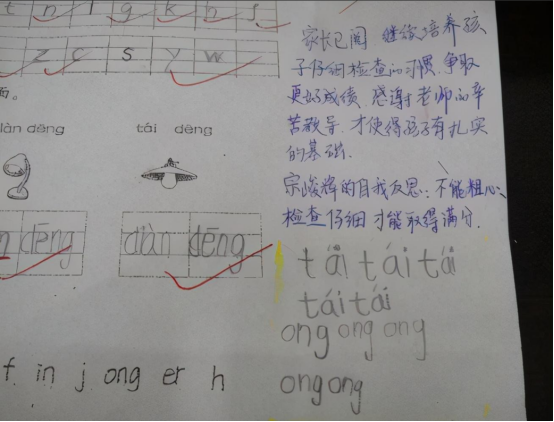 t n l g k h f
z c s y w
面。
iàn dēng
tái dēng
n dēng
diàn dēng
f in j ong er h
家长已阅 继续培养孩
子仔细检查的习惯,争取
更好成绩,感谢老师的辛
苦教导,才使得孩子有扎实
的基础.
宗峻牌的自我反思:不能粗心,
检查仔细才能取得满分.
tái tái tái
tái tái
ong ong ong
ong ong